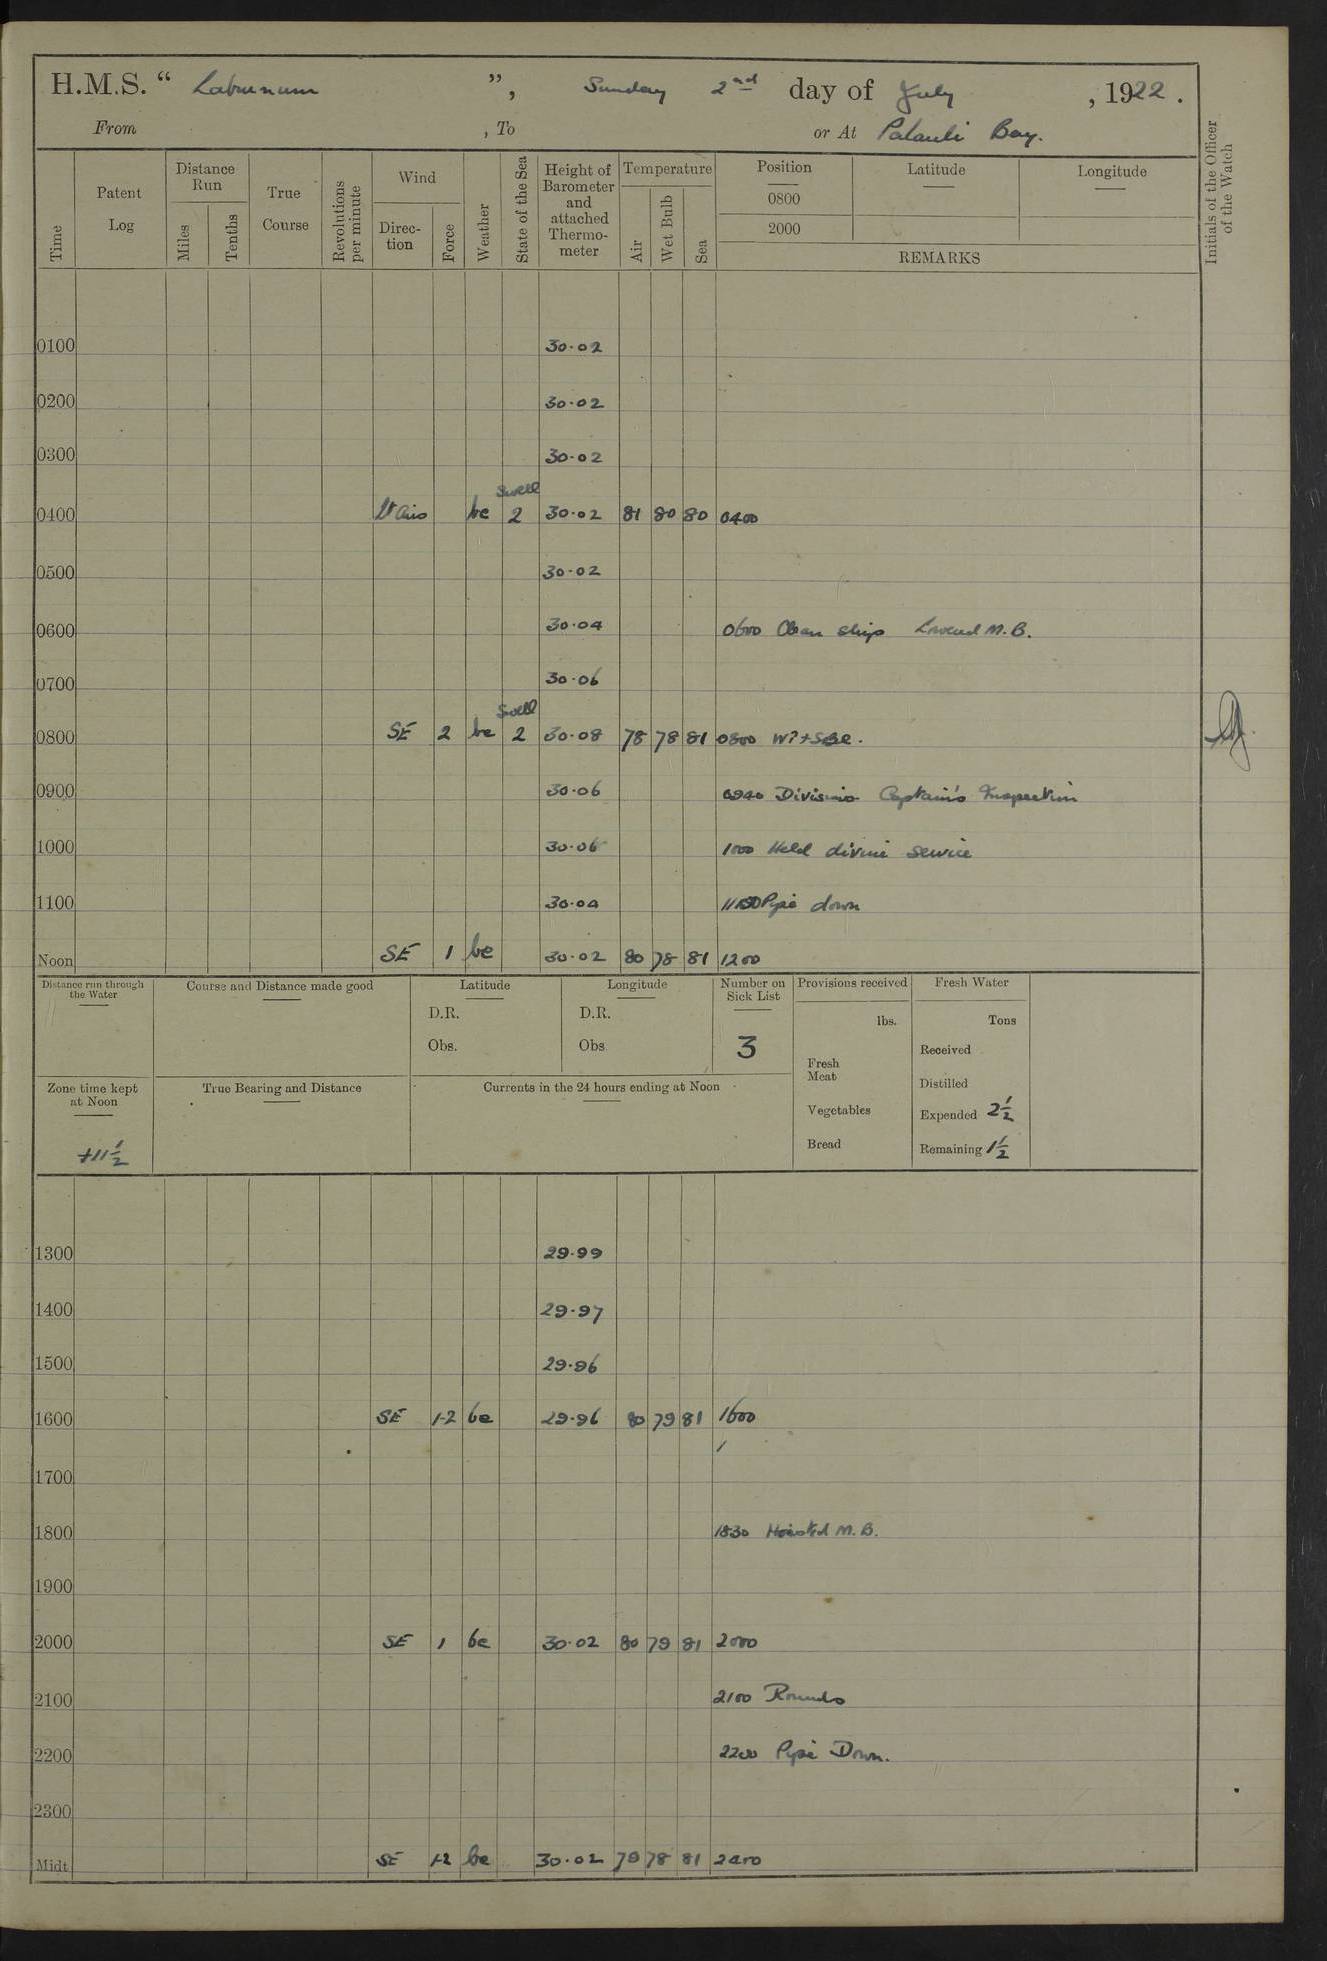 H.M.S. “ Labrunum ”, Sunday 2nd day of July , 1922 .
From , To or At Palauli Bay.
Time
Patent Log
Distance Run
Miles
Tenths
True Course
Revolutions per minute
Wind
Direc-tion
Force
Weather
State of the Sea
Height of Barometer and attached Thermo-meter
Temperature
Air
Wet Bulb
Sea
Position
0800
2000
Latitude
Longitude
REMARKS
Initials of the Officer of the Watch
0100 30·02
0200 30·02
0300 30·02
Swell
0400 Lt airs bc 2 30·02 81 80 80 0400
0500 30·02
0600 30·04 0600 Clean ship Lowered M.B.
0700 30·06
Swell
0800 SE 2 bc 2 30·08 78 78 81 0800
0900 30·06 0940 Divisions Captain's Inspection
1000 30·06 1000 Held divine service
1100 30·04 Pipe down
Noon SE 1 bc 30·02 80 78 81 1200
Distance run through the Water
Course and Distance made good
Latitude
D.R.
Obs.
Longitude
D.R.
Obs
Number on Sick List
3
Provisions received
lbs.
Fresh Meat
Vegetables
Bread
Fresh Water
Tons
Received
Distilled
Expended 2½
Remaining 1½
Zone time kept at Noon
+11½
True Bearing and Distance
Currents in the 24 hours ending at Noon
1300 29·99
1400 29·97
1500 29·96
1600 SE 1-2 bc 29·96 80 79 81 1600
1700
1800 1830 Hoisted M.B.
1900
2000 SE 1 bc 30·02 80 79 81 2000
2100 2100 Rounds
2200 2200 Pipe Down.
2300
Midt SE 1-2 bc 30·02 79 78 81 2400